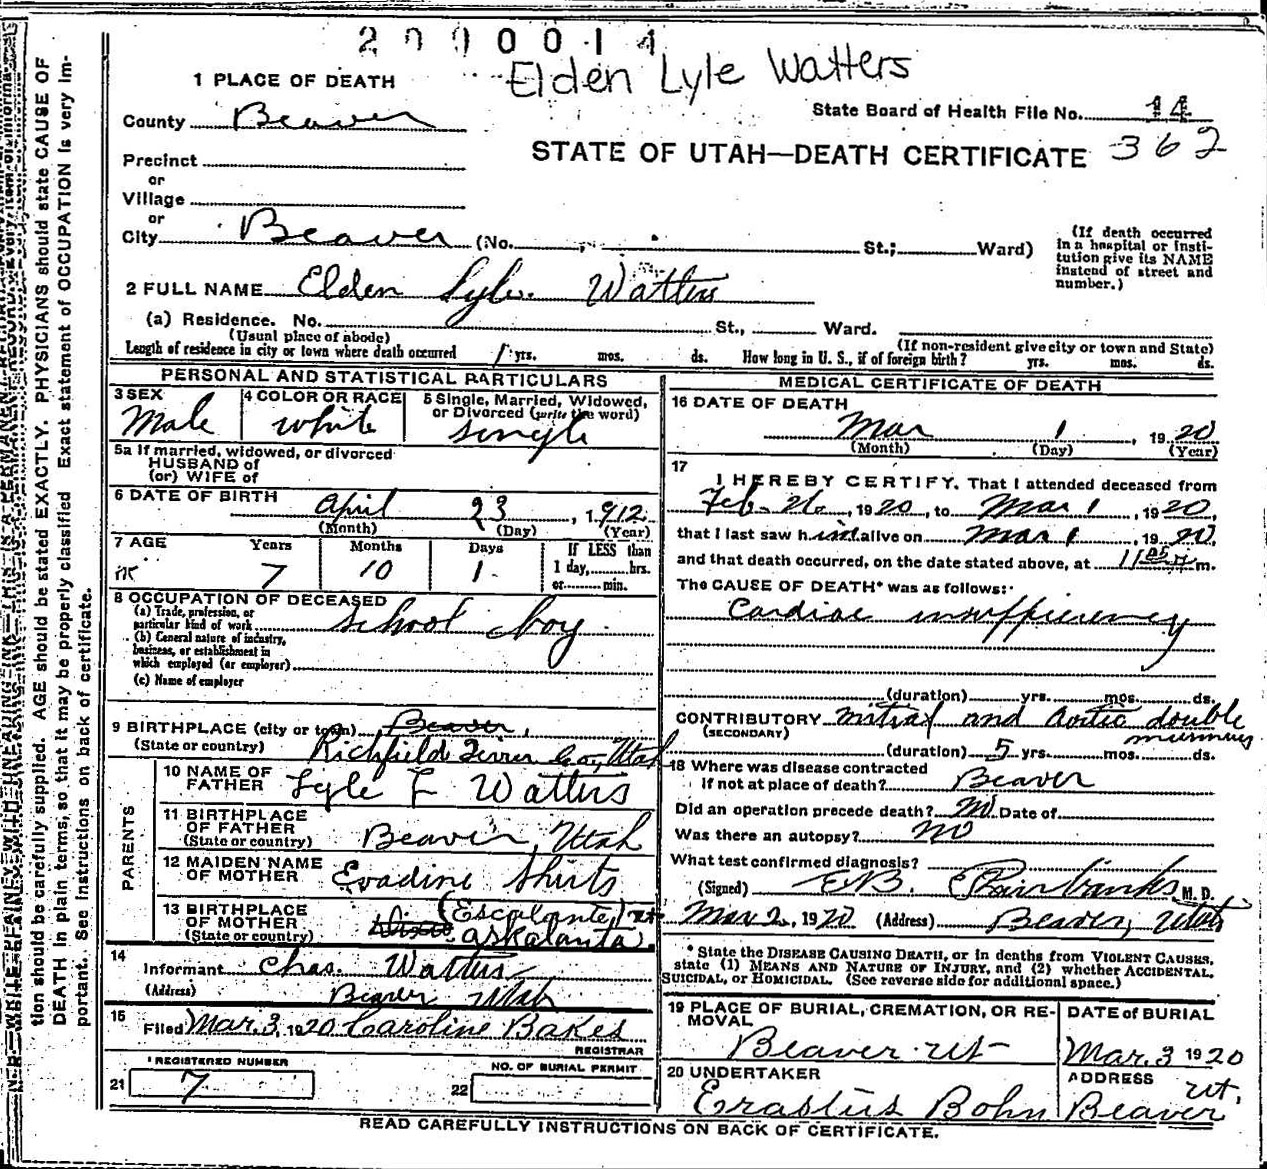 2010014
Elden Lyle Watters
1 PLACE OF DEATH
State Board of Health File No. 14
County Beaver
STATE OF UTAH—DEATH CERTIFICATE 362
Precinct
or
Village
or
City Beaver (No. St.; Ward)
(If death occurred in a hospital or institution give its NAME instead of street and number.)
2 FULL NAME Elden Lyle Watters
(a) Residence. No. St., Ward.
(Usual place of abode) (If non-resident give city or town and State)
Length of residence in city or town where death occurred yrs. mos. ds. How long in U. S., if of foreign birth? yrs. mos. ds.
PERSONAL AND STATISTICAL PARTICULARS
3 SEX 4 COLOR OR RACE 5 Single, Married, Widowed, or Divorced (write the word)
Male white single
5a If married, widowed, or divorced
HUSBAND of
(or) WIFE of
6 DATE OF BIRTH April 23, 1912
(Month) (Day) (Year)
7 AGE Years Months Days If LESS than
7 10 1 1 day, hrs.
or min.
8 OCCUPATION OF DECEASED
(a) Trade, profession, or
particular kind of work School boy
(b) General nature of industry,
business, or establishment in
which employed (or employer)
(c) Name of employer
9 BIRTHPLACE (city or town) Beaver,
(State or country) Richfield Sevier Co., Utah
PARENTS
10 NAME OF
FATHER Lyle F Watters
11 BIRTHPLACE
OF FATHER
(State or country) Beaver, Utah
12 MAIDEN NAME
OF MOTHER Evadine Shirts
13 BIRTHPLACE (Escalante) Ut
OF MOTHER
(State or country) askalanta.
14
Informant Chas. Watters
(Address) Beaver Utah
15
Filed Mar. 3, 1920 Caroline Bakes
REGISTRAR
REGISTERED NUMBER NO. OF BURIAL PERMIT
21 7 22
MEDICAL CERTIFICATE OF DEATH
16 DATE OF DEATH
Mar 1, 1920
(Month) (Day) (Year)
17
I HEREBY CERTIFY, That I attended deceased from
Feb. 26, 1920, to Mar 1, 1920,
that I last saw him alive on Mar 1, 1920,
and that death occurred, on the date stated above, at 11 05 m.
The CAUSE OF DEATH* was as follows:
Cardiac insufficiency
(duration) yrs. mos. ds.
CONTRIBUTORY mitral and Aortic double
(SECONDARY) murmurs
(duration) 5 yrs. mos. ds.
18 Where was disease contracted
if not at place of death? Beaver
Did an operation precede death? No Date of
Was there an autopsy? No
What test confirmed diagnosis?
(Signed) E.B. Fairbanks M. D.
Mar 2, 1920 (Address) Beaver, Utah
* State the DISEASE CAUSING DEATH, or in deaths from VIOLENT CAUSES,
state (1) MEANS AND NATURE OF INJURY, and (2) whether ACCIDENTAL,
SUICIDAL, or HOMICIDAL. (See reverse side for additional space.)
19 PLACE OF BURIAL, CREMATION, OR RE-
MOVAL
Beaver Ut
DATE of BURIAL
Mar. 3 1920
20 UNDERTAKER
Erastus Bohn
ADDRESS
Ut.
Beaver
READ CAREFULLY INSTRUCTIONS ON BACK OF CERTIFICATE.
tion should be carefully supplied. AGE should be stated EXACTLY. PHYSICIANS should state CAUSE OF
DEATH in plain terms, so that it may be properly classified Exact statement of OCCUPATION is very im-
portant. See instructions on back of certificate.